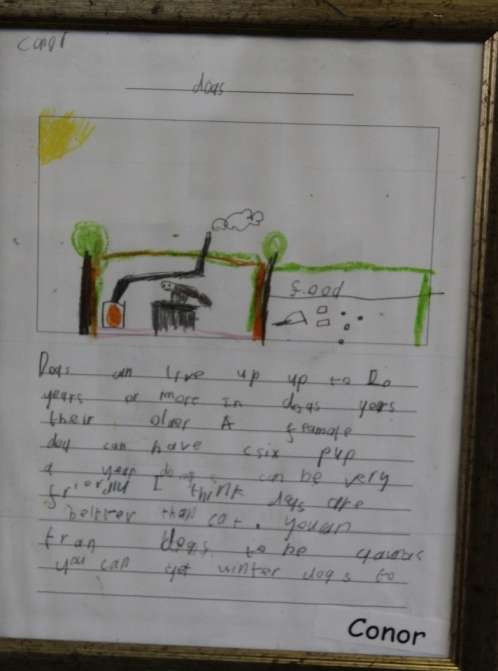 Conor
dogs
food
Dogs can live up up to 20
years or more in dogs years
their older A feamale
dog can have csix pup
a year dogs can be very
friendly I think dogs are
beltter than cat. youan
tran dogs to be
you can get winter dogs to
Conor